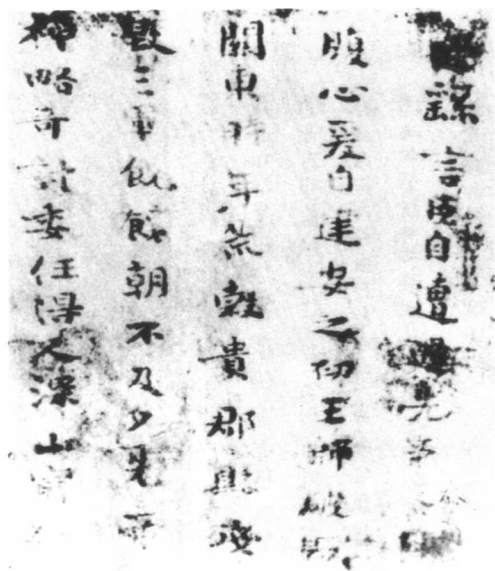 臣繇言臣自遭遇先帝
腹心爰自建安之初王師破賊
關東時年荒穀貴郡縣殘
毀三軍餽饟朝不及夕先帝
神略奇計委任得人深山